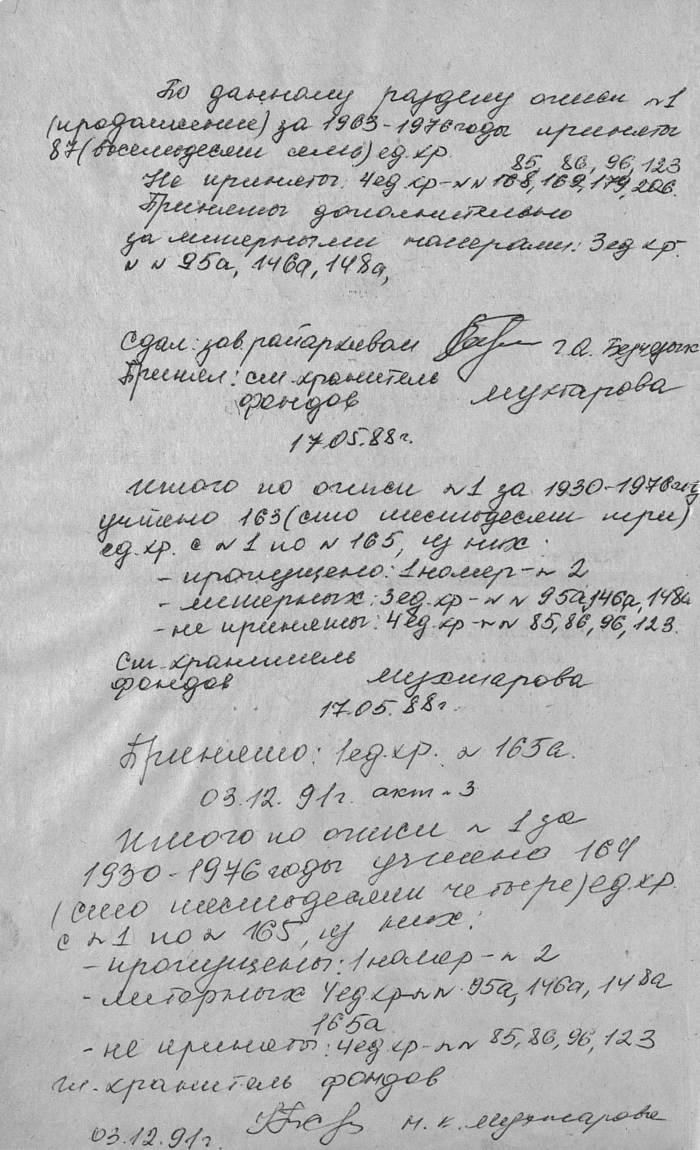 По данному разделу описи №1
(продолжение) за 1963-1976 годы приняты
87 (восемьдесят семь) ед.хр.
85, 86, 96, 123
Не приняты: 4 ед.хр - №№ 168, 169, 179, 206.
Приняты дополнительно
за литерными номерами: 3 ед.хр.
№ № 95а, 146а, 148а,
Сдал: зав. райархивом Г.А.
Принял: ст. хранитель
фондов Мухтарова
17.05.88г.
Итого по описи №1 за 1930-1976 год
учтено 163 (сто шестьдесят три)
ед.хр. с №1 по №165, из них:
- пропущено: 1 номер - № 2
- литерных: 3 ед.хр - № № 95а, 146а, 148а
- не приняты: 4 ед.хр - №№ 85, 86, 96, 123.
Ст. хранитель
фондов Мухтарова
17.05.88г.
Принято: 1 ед.хр. № 165а.
03.12.91г. акт № 3
Итого по описи № 1 за
1930-1976 годы учтено 164
(сто шестьдесят четыре) ед.хр.
с №1 по № 165, из них:
- пропущены: 1 номер - № 2
- литерных 4 ед.хр - №№ 95а, 146а, 148а
165а
- не приняты: 4 ед.хр - №№ 85, 86, 96, 123
гл. хранитель фондов
03.12.91г. Н.К. Мухтарова